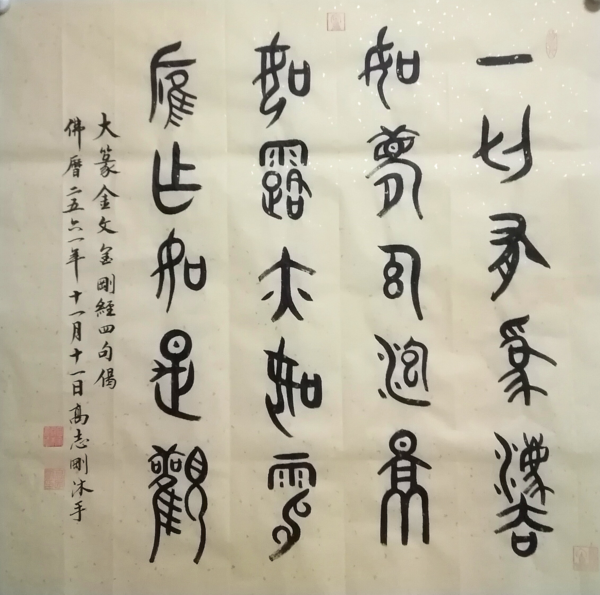 一切有為法
如夢幻泡影
如露亦如電
應作如是觀
大篆金文金剛經四句偈
佛曆二五六一年十一月十一日高志剛沐手